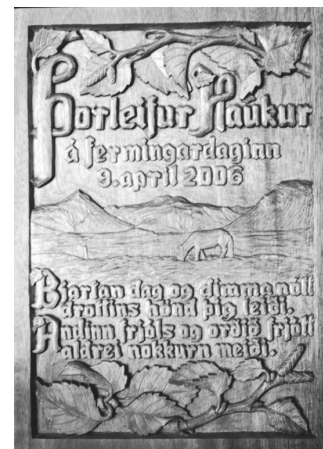 Þorleifur Haukur
á fermingardaginn
9. apríl 2006
Bjartan dag og dimma nótt
drottins hönd þig leiði.
Andinn frjáls og orðið frjótt
aldrei nokkurn meiði.